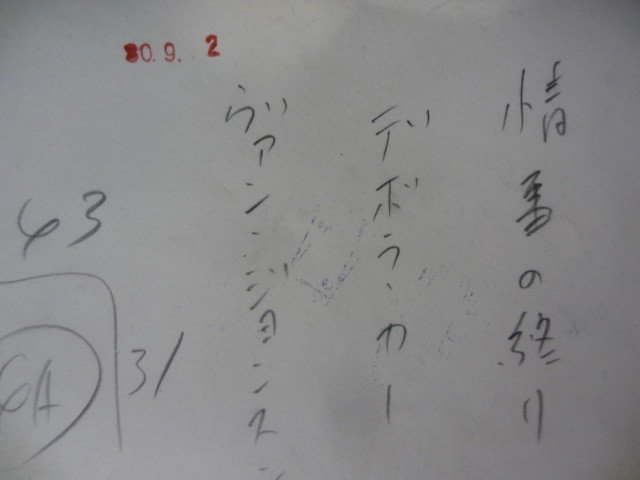 30.9. 2
情事の終り
デボラ・カー
ヴァン・ジョンスン
43
31
6A